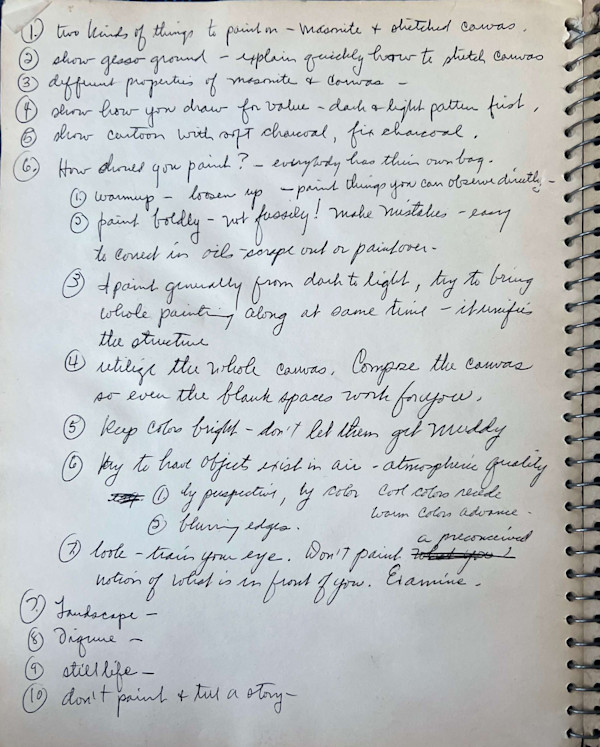 ① two kinds of things to paint on – masonite & stretched canvas.
② show gesso ground – explain quickly how to stretch canvas
③ different properties of masonite & canvas –
④ show how you draw for value – dark & light pattern first.
⑤ show cartoon with soft charcoal, fix charcoal.
⑥. How should you paint? – everybody has their own bag.
① warmup – loosen up – paint things you can observe directly –
② paint boldly – not fussily! make mistakes – easy
to correct in oils – scrape out or paint over –
③ I paint generally from dark to light, try to bring
whole painting along at same time – it unifies
the structure
④ utilize the whole canvas. Compose the canvas
so even the blank spaces work for you.
⑤ keep colors bright – don't let them get muddy
⑥ try to have objects exist in air – atmospheric quality
① by perspective, by color cool colors recede
warm colors advance –
② blurring edges.
a preconceived
⑦ look – train your eye. Don't paint what you
notion of what is in front of you. Examine.
⑦. Landscape –
⑧ Figure –
⑨ still life –
⑩ don't paint & tell a story –